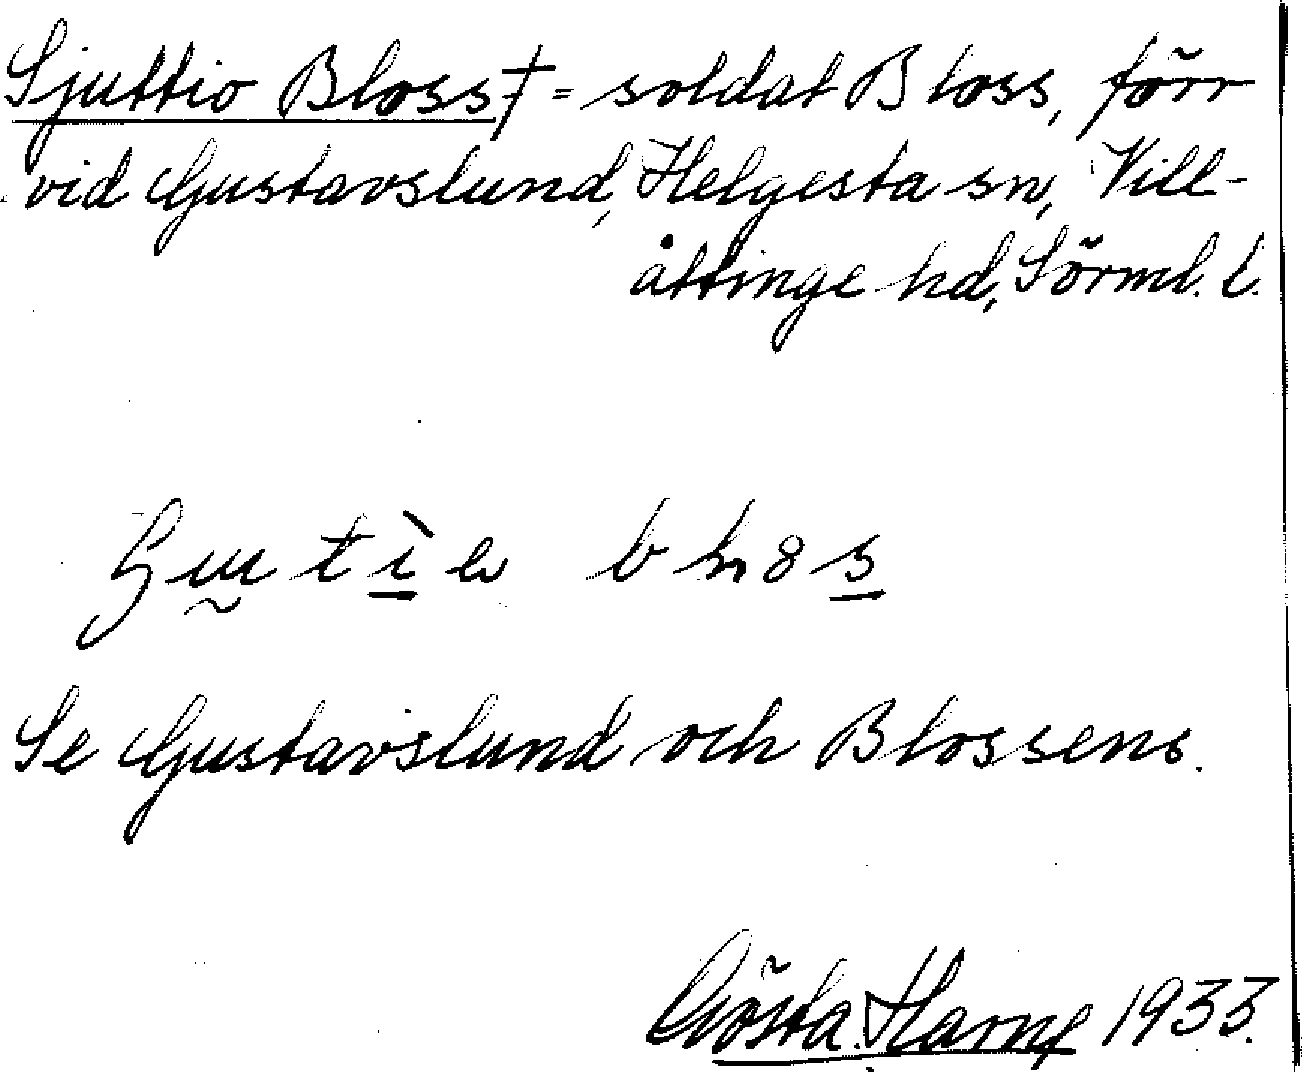 Sjuttio Bloss† = soldat Bloss, förr
vid Gustavslund, Helgesta sn, Vill-
åttinge hd, Sörml. l.
Se Gustavslund och Blossens.
Gösta 1933.